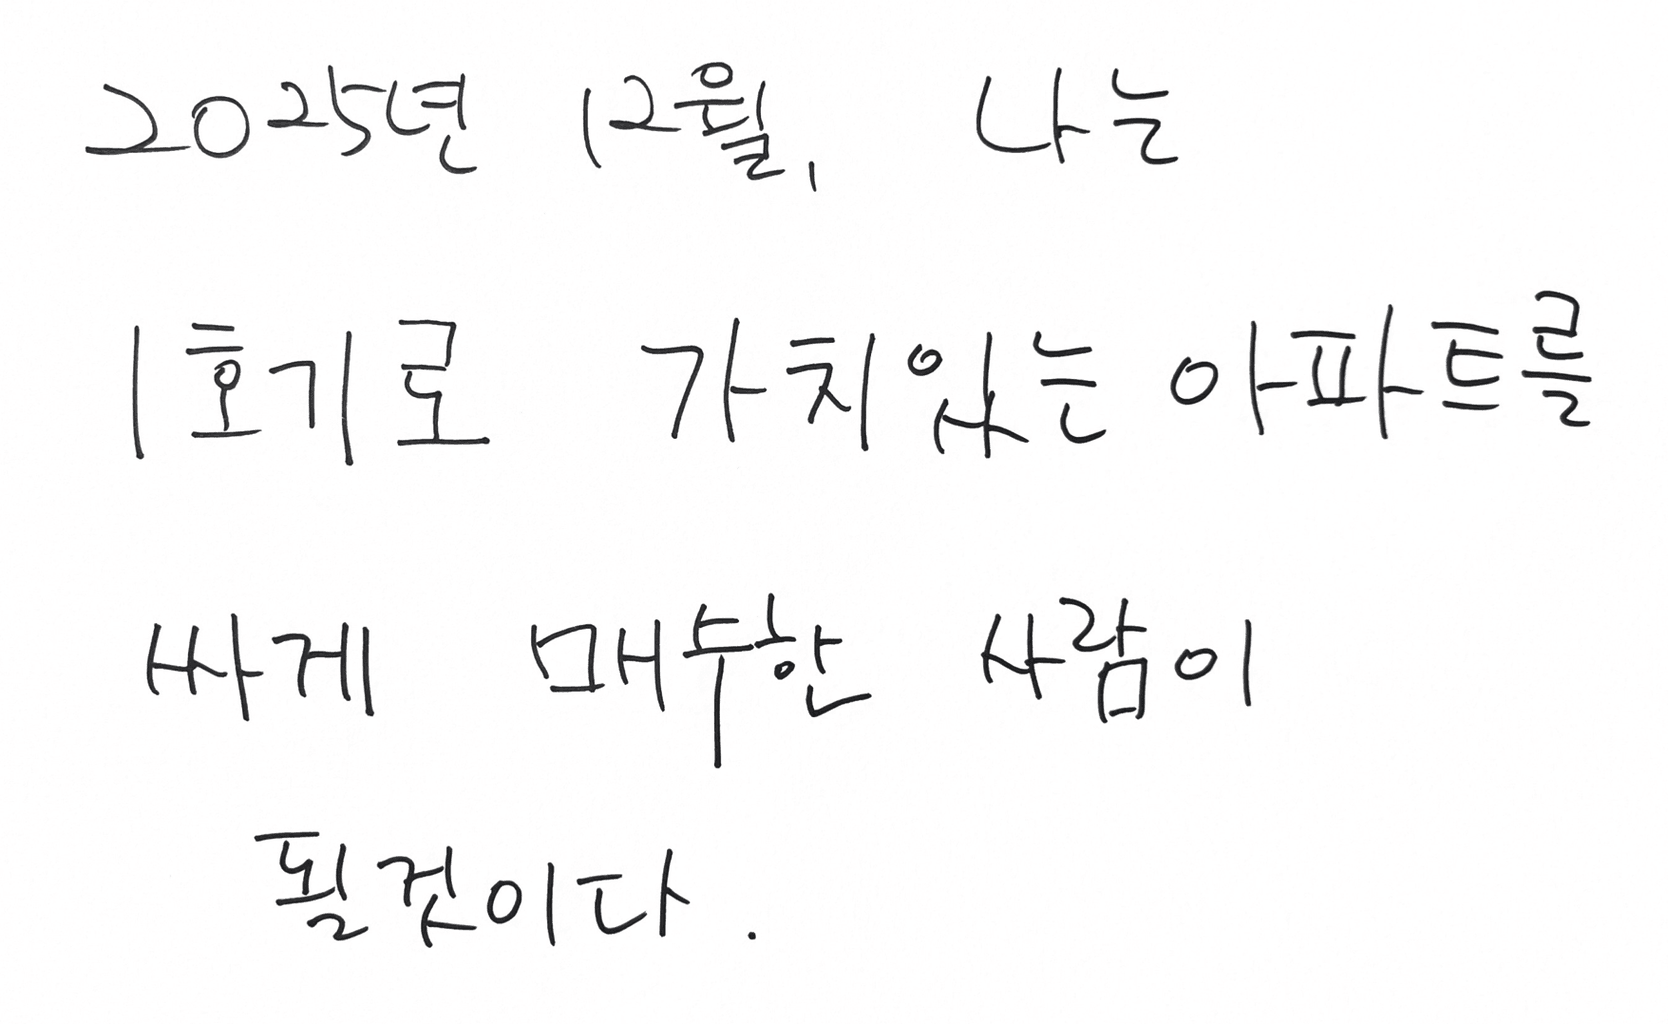 2025년 12월, 나는
1호기로 가치있는 아파트를
싸게 매수한 사람이
될것이다.